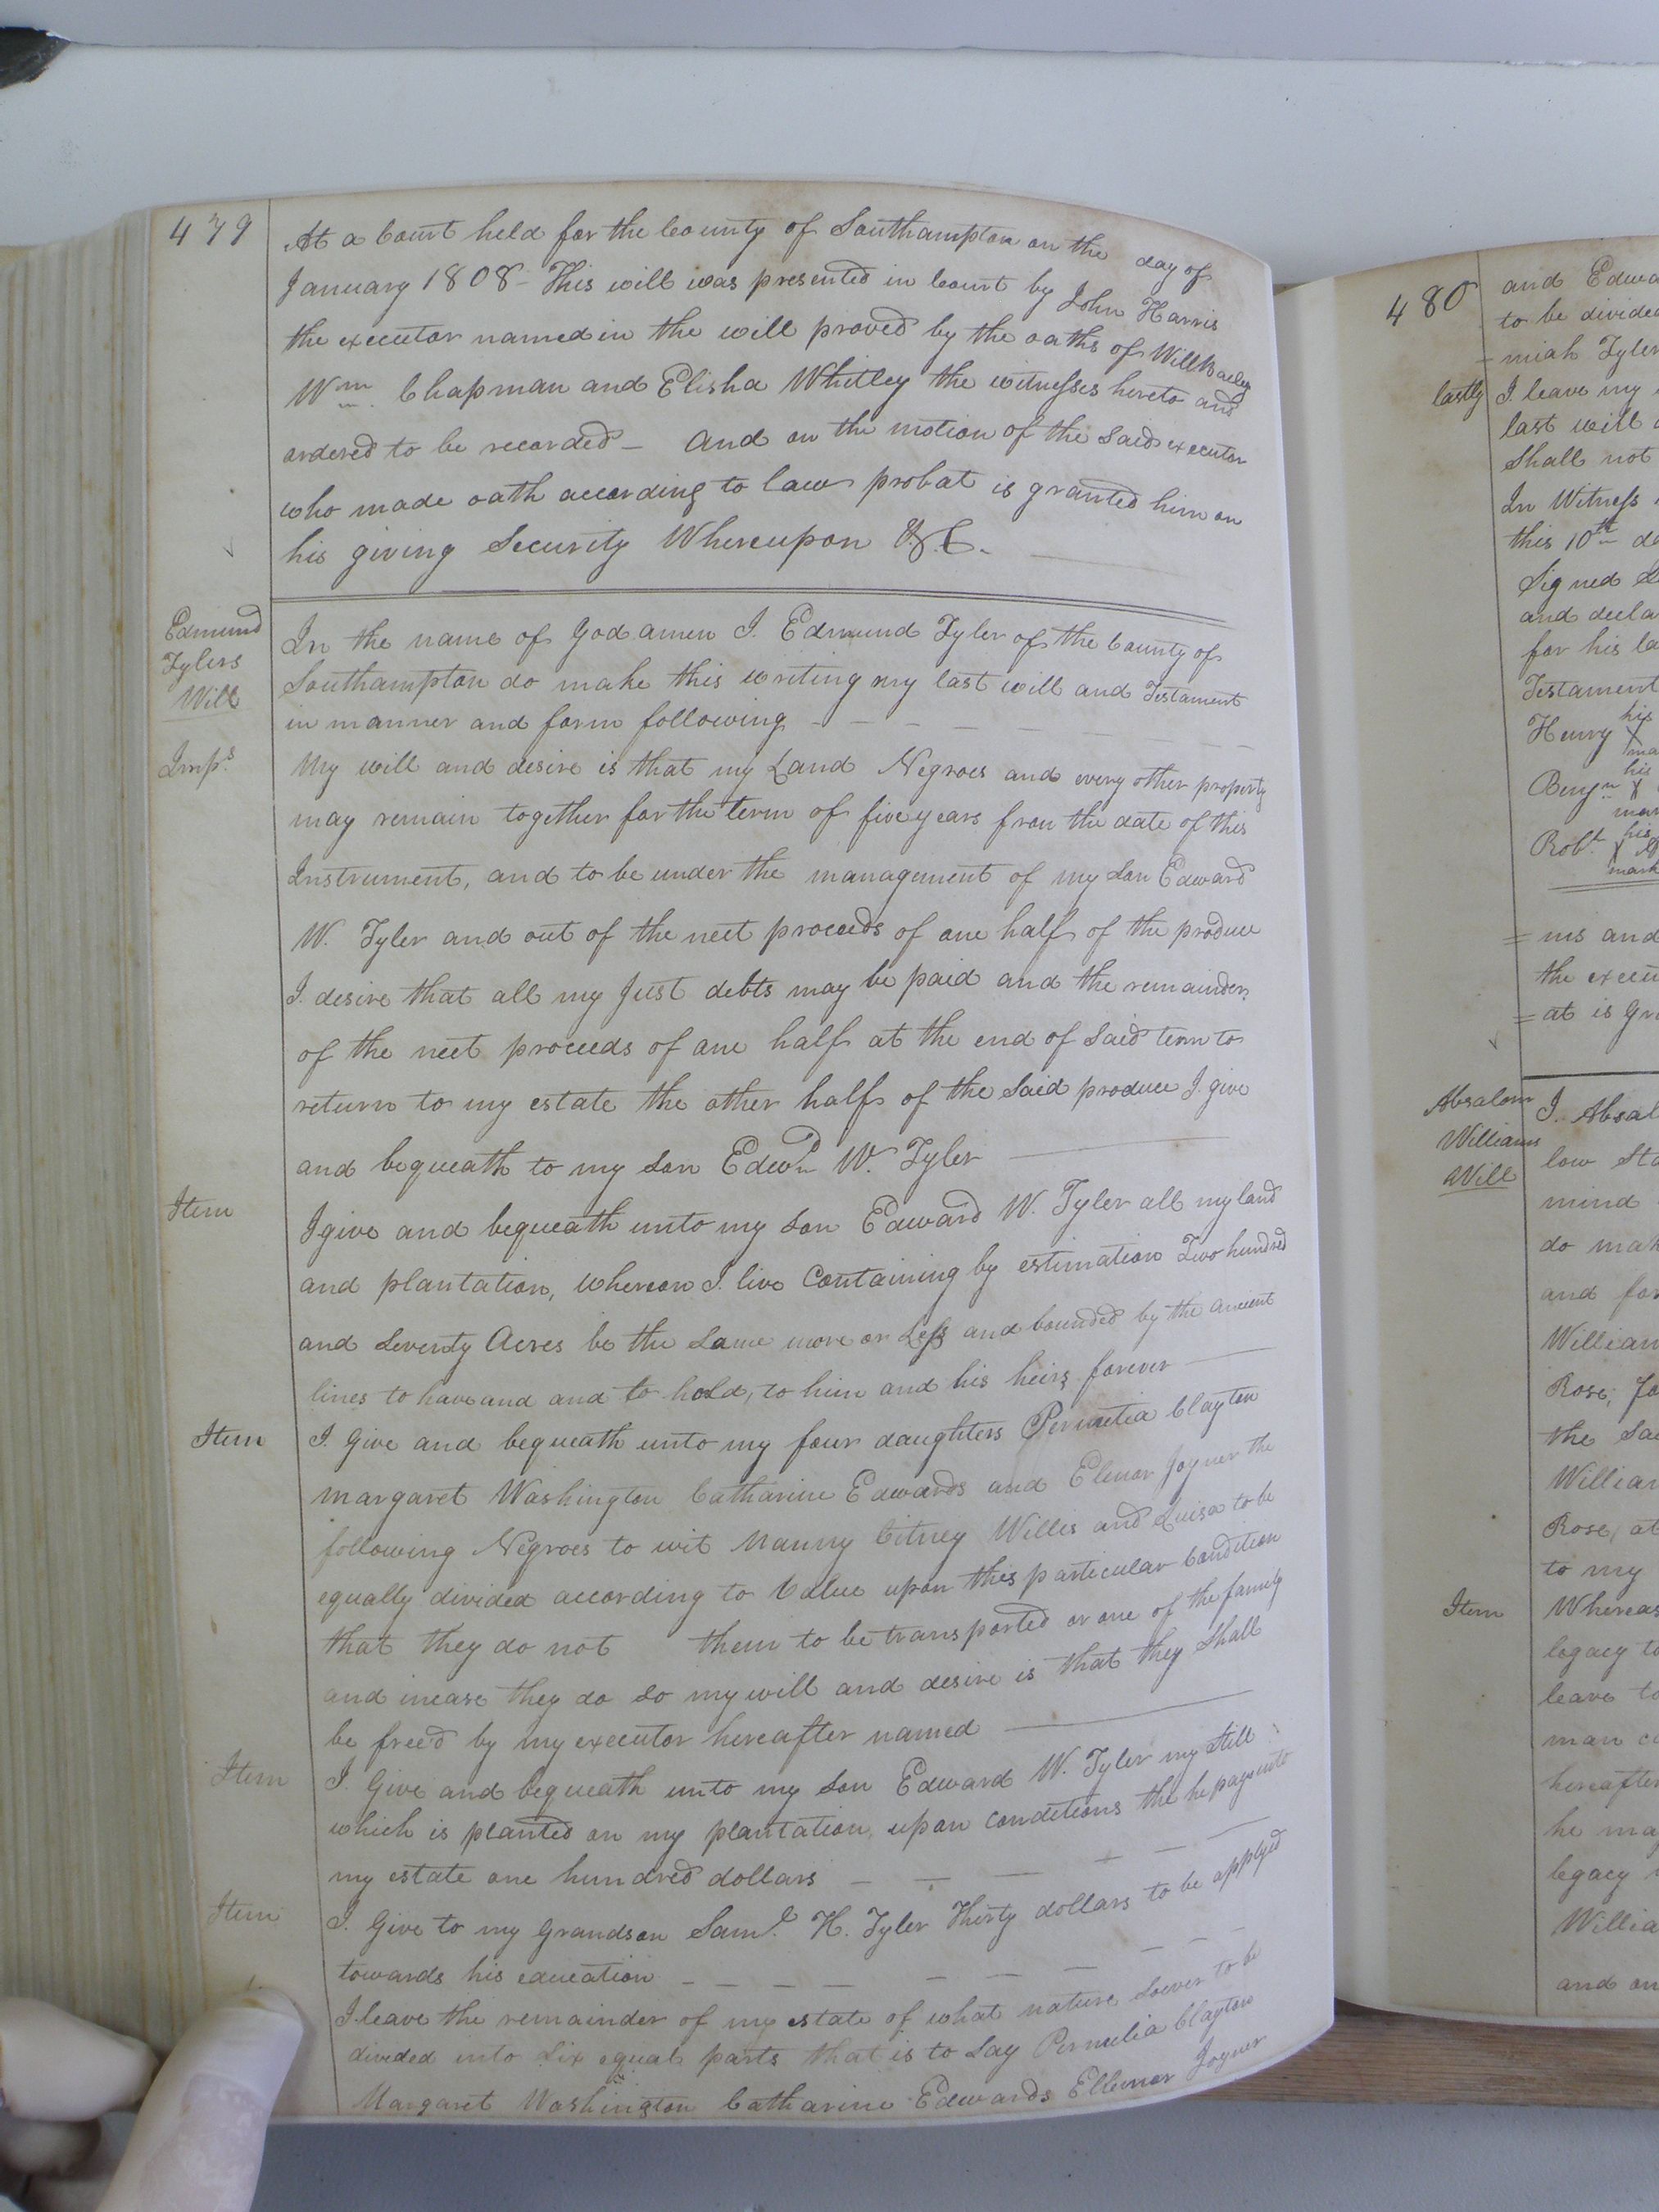 479
At a Court held for the County of Southampton on the day of
January 1808 - This will was presented in Court by John Harris
the executor named in the will proved by the oaths of Will Bailey
Wm. Chapman and Elisha Whitley the witnesses hereto and
ordered to be recorded - And on the motion of the said executor
who made oath according to law probat is granted him on
his giving Security Whereupon &.C.
Edmund
Tylers
Will
In the name of God amen I. Edmund Tyler of the County of
Southampton do make this writing my last will and Testament
in manner and form following
Imps.
My will and desire is that my Land Negroes and every other property
may remain together for the term of five years from the date of this
Instrument, and to be under the management of my son Edward
W. Tyler and out of the neet proceeds of one half of the produce
I. desire that all my Just debts may be paid and the remainder
of the neet proceeds of one half at the end of said term to
return to my estate the other half of the Said produce I. give
and bequeath to my son Edwd. W. Tyler
Item
I give and bequeath unto my son Edward W. Tyler all my land
and plantation, whereon I. live Containing by estimation Two hundred
and Seventy Acres be the Same more or Less and bounded by the ancient
lines to have and and to hold, to him and his heirs forever
Item
I. Give and bequeath unto my four daughters Permetia Clayton
Margaret Washington Catharine Edwards and Elenor Joyner the
following Negroes to wit Nanny Citney Willis and Luisa to be
equally divided according to Value upon this particular Condition
that they do not them to be transported or one of the family
and incase they do so my will and desire is that they Shall
be free'd by my executor hereafter named
Item
I. Give and bequeath unto my son Edward W. Tyler my Still
which is planted on my plantation, upon conditions the he pays unto
my estate one hundred dollars
Item
I. Give to my Grandson Saml. H. Tyler Thirty dollars to be applyed
towards his education
I. leave the remainder of my estate of what nature Soever to be
divided into Six equal parts that is to Say Permelia Clayton
Margaret Washington Catharine Edwards Ellenor Joyner
480
and Edwa
to be divided
- miah Tyler
lastly
I. leave my
last will
Shall not
In Witness
this 10th da
Signed
and decla
for his la
Testament
his
Henry X
ma
his
Benjn X
mar
his
Robt. X
mark
= ms and
the execu
= at is gra
Absalom
Williams
Will
I. Absal
low Sta
mind
do mak
and for
William
Rose,
the Sa
William
Rose, at
to my
Item
Whereas
legacy to
leave to
man
hereafter
he ma
legacy
Willia
and on